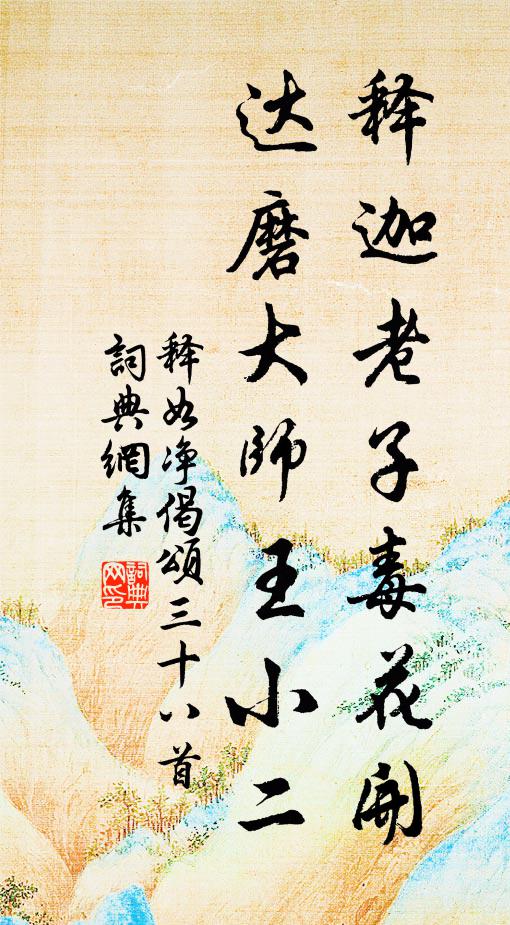 释迦老子毒花开
达磨大师王小二
释如净偈颂三十八首
詞典網集
詞典网印